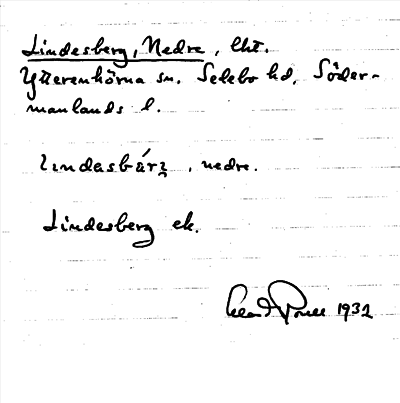 Lindesberg, Nedre, lht.
Ytterenhörna sn. Selebo hd, Söder-
manlands l.
lındasbárꝫ, nedre.
Lindesberg ek.
1932